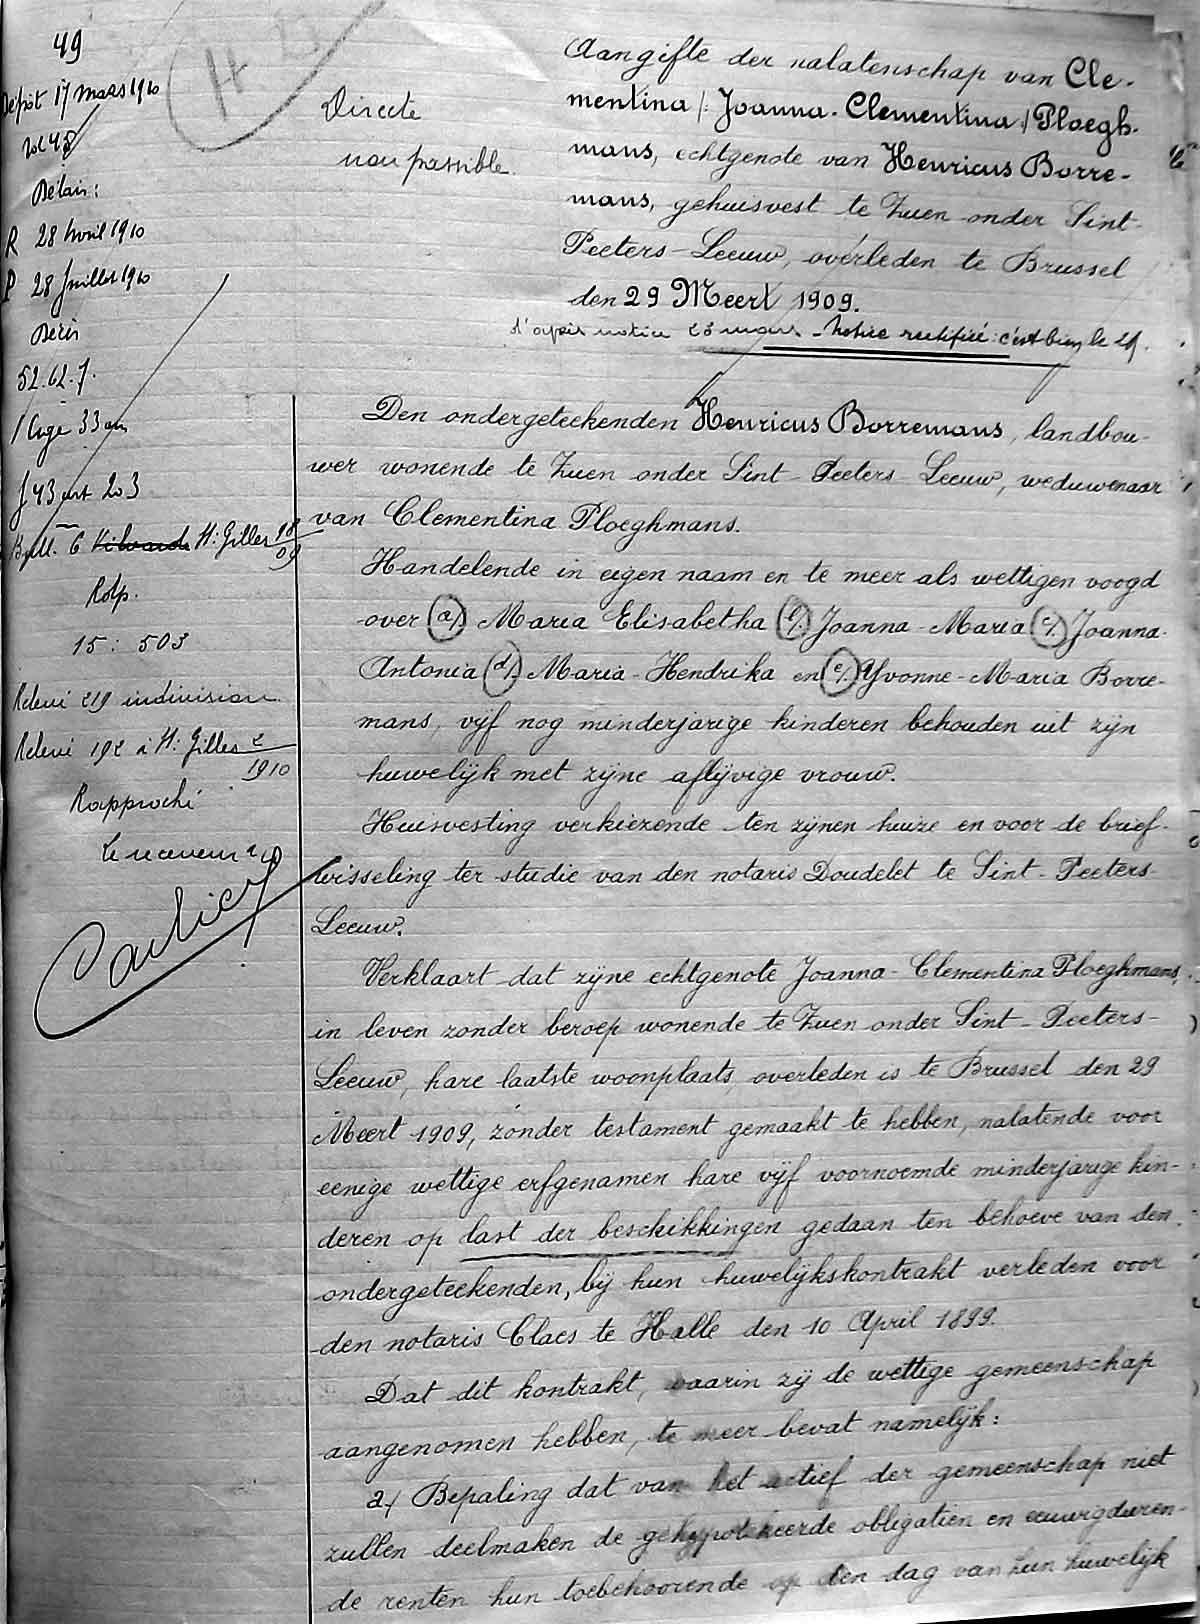 49
Dépôt 17 mars 1910
vol 48
Délais:
R 28 Avril 1910
P 28 Juillet 1910
Décès
52.62.7.
1 âgé 33 ans
f 43 art 203
Bull. 6 Vilvorde St: Gilles 98/09
Rép.
15: 503
Relevé 219 indivision
Relevé 192 à St: Gilles 2/1910
Rapproché
Le receveur
Directe
non passible
Aangifte der nalatenschap van Cle-
mentina /: Joanna-Clementina :/ Ploegh-
mans, echtgenote van Henricus Borre-
mans, gehuisvest te Zuen onder Sint-
Peeters-Leeuw, overleden te Brussel
den 29 Meert 1909.
d'après notice 23 mars - Notice rectifiée: c'est bien le 29.
Den ondergeteekenden Henricus Borremans, landbou-
wer wonende te Zuen onder Sint-Peeters-Leeuw, weduwenaar
van Clementina Ploeghmans.
Handelende in eigen naam en te meer als wettigen voogd
over a/. Maria Elisabetha b/. Joanna-Maria c/. Joanna-
Antonia d/. Maria-Hendrika en e/. Yvonne-Maria Borre-
mans, vijf nog minderjarige kinderen behouden uit zijn
huwelijk met zijne aflijvige vrouw.
Huisvesting verkiezende ten zijnen huize en voor de brief-
wisseling ter studie van den notaris Doudelet te Sint-Peeters-
Leeuw.
Verklaart dat zijne echtgenote Joanna-Clementina Ploeghmans,
in leven zonder beroep wonende te Zuen onder Sint-Peeters-
Leeuw, hare laatste woonplaats, overleden is te Brussel den 29
Meert 1909, zonder testament gemaakt te hebben, nalatende voor
eenige wettige erfgenamen hare vijf voornoemde minderjarige kin-
deren op last der beschikkingen gedaan ten behoeve van den
ondergeteekenden, bij hun huwelijkskontrakt verleden voor
den notaris Claes te Halle den 10 April 1899.
Dat dit kontrakt, waarin zij de wettige gemeenschap
aangenomen hebben, te meer bevat namelijk:
a/ Bepaling dat van het actief der gemeenschap niet
zullen deelmaken de gehypotekeerde obligatien en eeuwigduren-
de renten hun toebehoorende op den dag van hun huwelijk